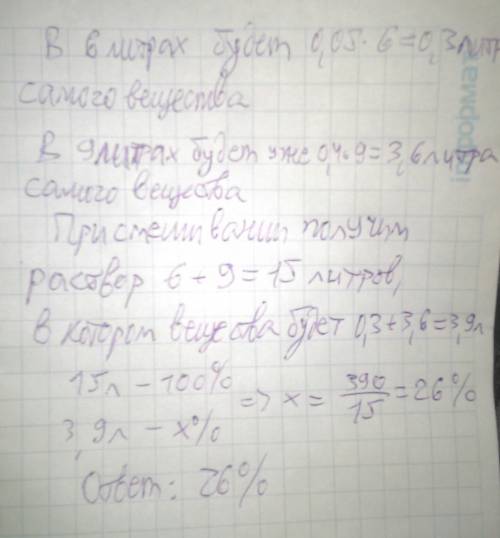 В 6 литрах будет 0,05·6=0,3 литр
самого вещества
В 9 литрах будет уже 0,4·9=3,6 литра
самого вещества
При смешивании получим
раствор 6+9=15 литров,
в котором вещества будет 0,3+3,6=3,9л
15л – 100%
3,9л – x%
=> x = 390/15 = 26%
Ответ: 26%